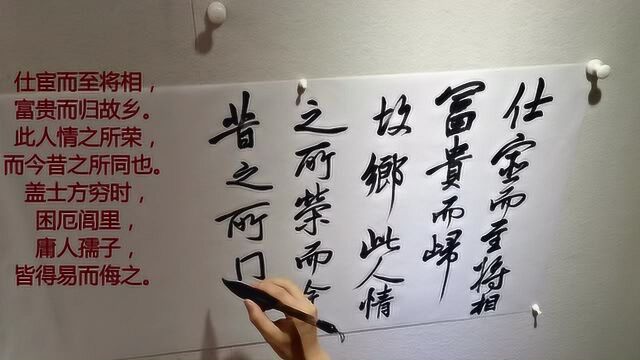 仕宦而至将相，
富贵而归故乡。
此人情之所荣，
而今昔之所同也。
盖士方穷时，
困厄闾里，
庸人孺子，
皆得易而侮之。
仕宦而至將相
富貴而歸
故鄉此人情
之所榮而今
昔之所